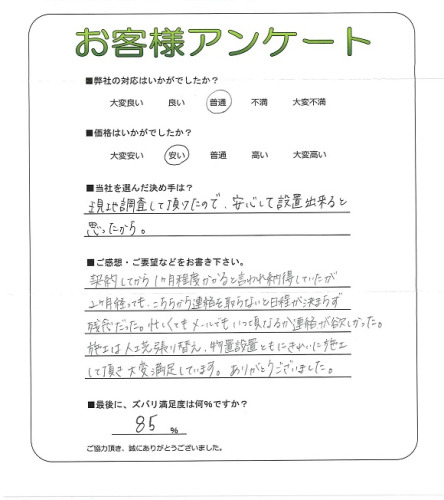 お客様アンケート
■弊社の対応はいかがでしたか？
大変良い 良い 普通 不満 大変不満
■価格はいかがでしたか？
大変安い 安い 普通 高い 大変高い
■当社を選んだ決め手は？
現地調査して頂けたので、安心して設置出来ると
思ったから。
■ご感想・ご要望などをお書き下さい。
契約してから1ヶ月程度かかると言われ納得していたが
2ヶ月経っても、こちらから連絡を取らないと日程が決まらず
残念だった。忙しくてもメールでもいつ頃なるか連絡が欲しかった。
施工は人工芝張り替え、物置設置ともにきれいに施工
して頂き大変満足しています。ありがとうございました。
■最後に、ズバリ満足度は何％ですか？
85 %
ご協力頂き、誠にありがとうございました。